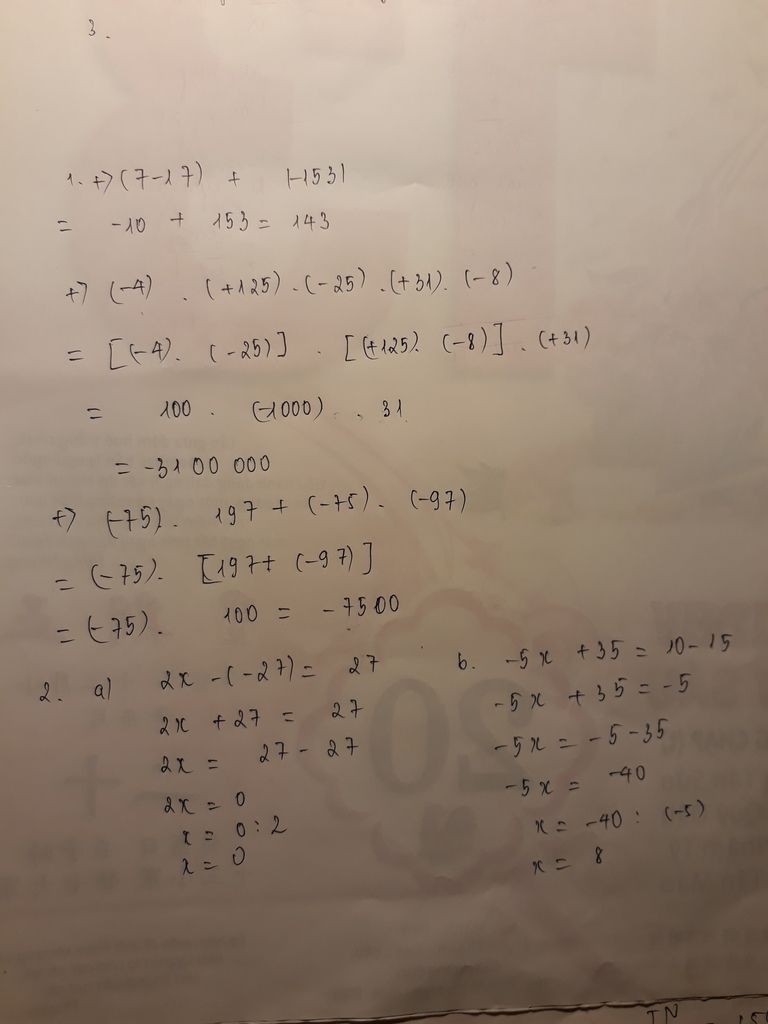 3.
1. +) (7-17) + |-153|
= -10 + 153 = 143
+) (-4) . (+125) . (-25) . (+31) . (-8)
= [(-4) . (-25)] . [(+125) . (-8)] . (+31)
= 100 . (-1000) . 31
= -3100 000
+) (-75) . 197 + (-75) . (-97)
= (-75) . [197+ (-97)]
= (-75) . 100 = -7500
2. a) 2x -(-27) = 27
2x + 27 = 27
2x = 27 - 27
2x = 0
x = 0 : 2
x = 0
b. -5x + 35 = 10-15
-5x + 35 = -5
-5x = -5-35
-5x = -40
x = -40 : (-5)
x = 8
20
IN